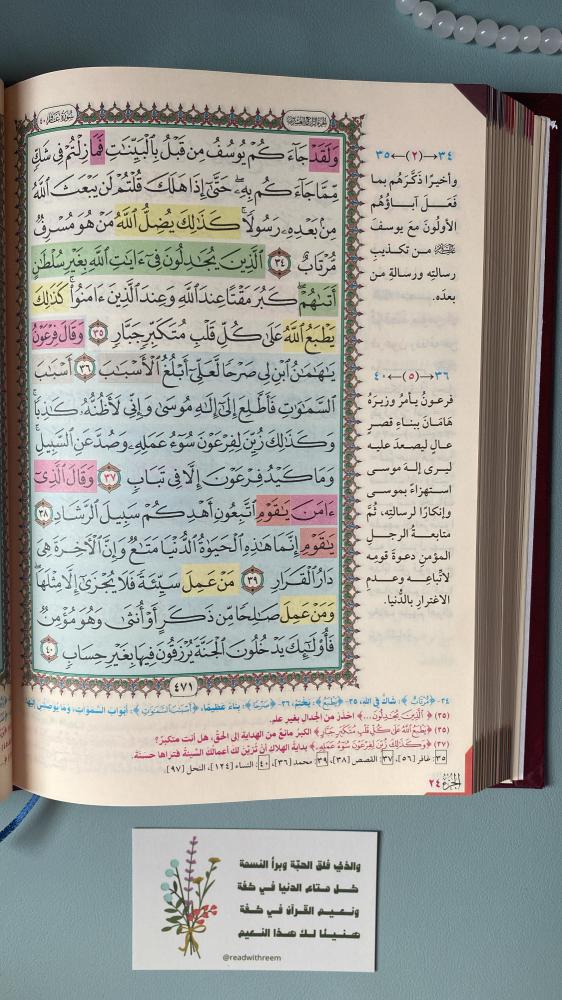 الجزء الرابع والعشرون
سورة غافر ٤٠
وَلَقَدْ جَآءَكُمْ يُوسُفُ مِن قَبْلُ بِٱلْبَيِّنَٰتِ فَمَا زِلْتُمْ فِى شَكٍّ
مِّمَّا جَآءَكُم بِهِۦ حَتَّىٰٓ إِذَا هَلَكَ قُلْتُمْ لَن يَبْعَثَ ٱللَّهُ
مِنۢ بَعْدِهِۦ رَسُولًا كَذَٰلِكَ يُضِلُّ ٱللَّهُ مَنْ هُوَ مُسْرِفٌ
مُّرْتَابٌ ٣٤ ٱلَّذِينَ يُجَٰدِلُونَ فِىٓ ءَايَٰتِ ٱللَّهِ بِغَيْرِ سُلْطَٰنٍ
أَتَىٰهُمْ كَبُرَ مَقْتًا عِندَ ٱللَّهِ وَعِندَ ٱلَّذِينَ ءَامَنُوا۟ كَذَٰلِكَ
يَطْبَعُ ٱللَّهُ عَلَىٰ كُلِّ قَلْبِ مُتَكَبِّرٍ جَبَّارٍ ٣٥ وَقَالَ فِرْعَوْنُ
يَٰهَٰمَٰنُ ٱبْنِ لِى صَرْحًا لَّعَلِّىٓ أَبْلُغُ ٱلْأَسْبَٰبَ ٣٦ أَسْبَٰبَ
ٱلسَّمَٰوَٰتِ فَأَطَّلِعَ إِلَىٰٓ إِلَٰهِ مُوسَىٰ وَإِنِّى لَأَظُنُّهُۥ كَٰذِبًا
وَكَذَٰلِكَ زُيِّنَ لِفِرْعَوْنَ سُوٓءُ عَمَلِهِۦ وَصُدَّ عَنِ ٱلسَّبِيلِ
وَمَا كَيْدُ فِرْعَوْنَ إِلَّا فِى تَبَابٍ ٣٧ وَقَالَ ٱلَّذِىٓ
ءَامَنَ يَٰقَوْمِ ٱتَّبِعُونِ أَهْدِكُمْ سَبِيلَ ٱلرَّشَادِ ٣٨
يَٰقَوْمِ إِنَّمَا هَٰذِهِ ٱلْحَيَوٰةُ ٱلدُّنْيَا مَتَٰعٌ وَإِنَّ ٱلْءَاخِرَةَ هِىَ
دَارُ ٱلْقَرَارِ ٣٩ مَنْ عَمِلَ سَيِّئَةً فَلَا يُجْزَىٰٓ إِلَّا مِثْلَهَا
وَمَنْ عَمِلَ صَٰلِحًا مِّن ذَكَرٍ أَوْ أُنثَىٰ وَهُوَ مُؤْمِنٌ
فَأُو۟لَٰٓئِكَ يَدْخُلُونَ ٱلْجَنَّةَ يُرْزَقُونَ فِيهَا بِغَيْرِ حِسَابٍ ٤٠
٤٧١
٣٤←(٢)→٣٥
وأخيرًا ذكَّرَهُم بما
فَعَلَ آباؤُهُم
الأولُونَ مَعَ يوسفَ
من تكذيبِ
رسالتِه ورسالةِ من
بعدَه.
٣٦←(٥)→٤٠
فرعونُ يأمرُ وزيرَهُ
هَامَانَ ببناءِ قصرٍ
عالٍ ليصعدَ عليه
ليرى إلهَ موسى
استهزاءً بموسى
وإنكارًا لرسالتِه، ثُمَّ
متابعةُ الرجلِ
المؤمنِ دعوةَ قومِه
لاتِّباعِه وعدمِ
الاغترارِ بالدُّنيا.
٣٤- ﴿مُّرْتَابٌ﴾: شاكٌّ في اللهِ، ٣٥- ﴿يَطْبَعُ﴾: يَخْتِمُ، ٣٦- ﴿صَرْحًا﴾: بناءً عظيمًا، ﴿أَسْبَٰبَ ٱلسَّمَٰوَٰتِ﴾: أبوابَ السَّمواتِ، وما يُوصِلُني إليها
(٣٥) ﴿ٱلَّذِينَ يُجَٰدِلُونَ...﴾ احذرْ من الجدالِ بغيرِ علمٍ.
(٣٥) ﴿يَطْبَعُ ٱللَّهُ عَلَىٰ كُلِّ قَلْبِ مُتَكَبِّرٍ جَبَّارٍ﴾ الكبرُ مانعٌ من الهدايةِ إلى الحقِّ، هل أنت متكبرٌ؟
(٣٧) ﴿وَكَذَٰلِكَ زُيِّنَ لِفِرْعَوْنَ سُوٓءُ عَمَلِهِۦ﴾ بدايةُ الهلاكِ أن تُزيَّنَ لكَ أعمالُكَ السَّيئةُ فتراها حسَنةً.
٣٥: غافر [٥٦]، ٣٧: القصص [٣٨]، ٣٩: محمد [٣٦]، ٤٠: النساء [١٢٤]، النحل [٩٧].
الجزء ٢٤
والذي فلق الحبّة وبرأ النسمة
كل متاع الدنيا في كفّة
ونعيم القرآن في كفّة
هنيئًا لك هذا النعيم
@readwithreem